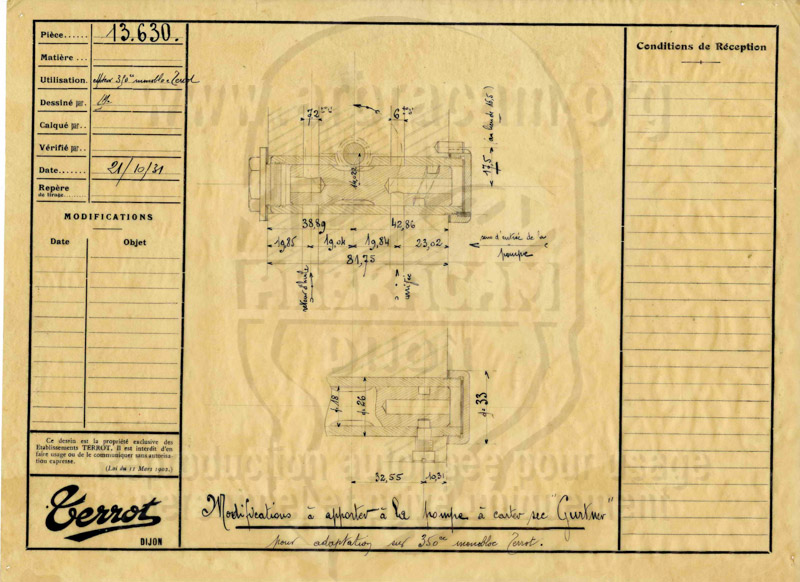 Pièce...... 13.630.
Matière...
Utilisation. Moteur 350cc monobloc Terrot
Dessiné par.
Calqué par..
Vérifié par..
Date....... 21/10/31
Repère
de tirage........
MODIFICATIONS
Date Objet
Ce dessin est la propriété exclusive des
Etablissements TERROT. Il est interdit d'en
faire usage ou de le communiquer sans autorisa-
tion expresse.
(Loi du 11 Mars 1902.)
Terrot
DIJON
7,2
6
17,5 au lieu de 16,5)
38,89 42,86
19,85 19,04 19,84 23,02
81,75
sens d'entrée de la
pompe
retour d'huile
arrivée
ø 18
ø 26
ø 33
32,55 10,31
Modifications à apporter à la pompe à carter sec "Gurtner"
pour adaptation sur 350cc monobloc Terrot.
Conditions de Réception
DIJON